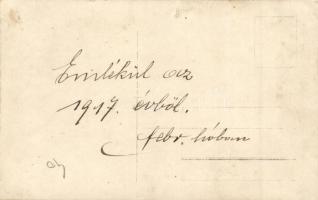 Emlékül az
1917. évből.
febr. hóban